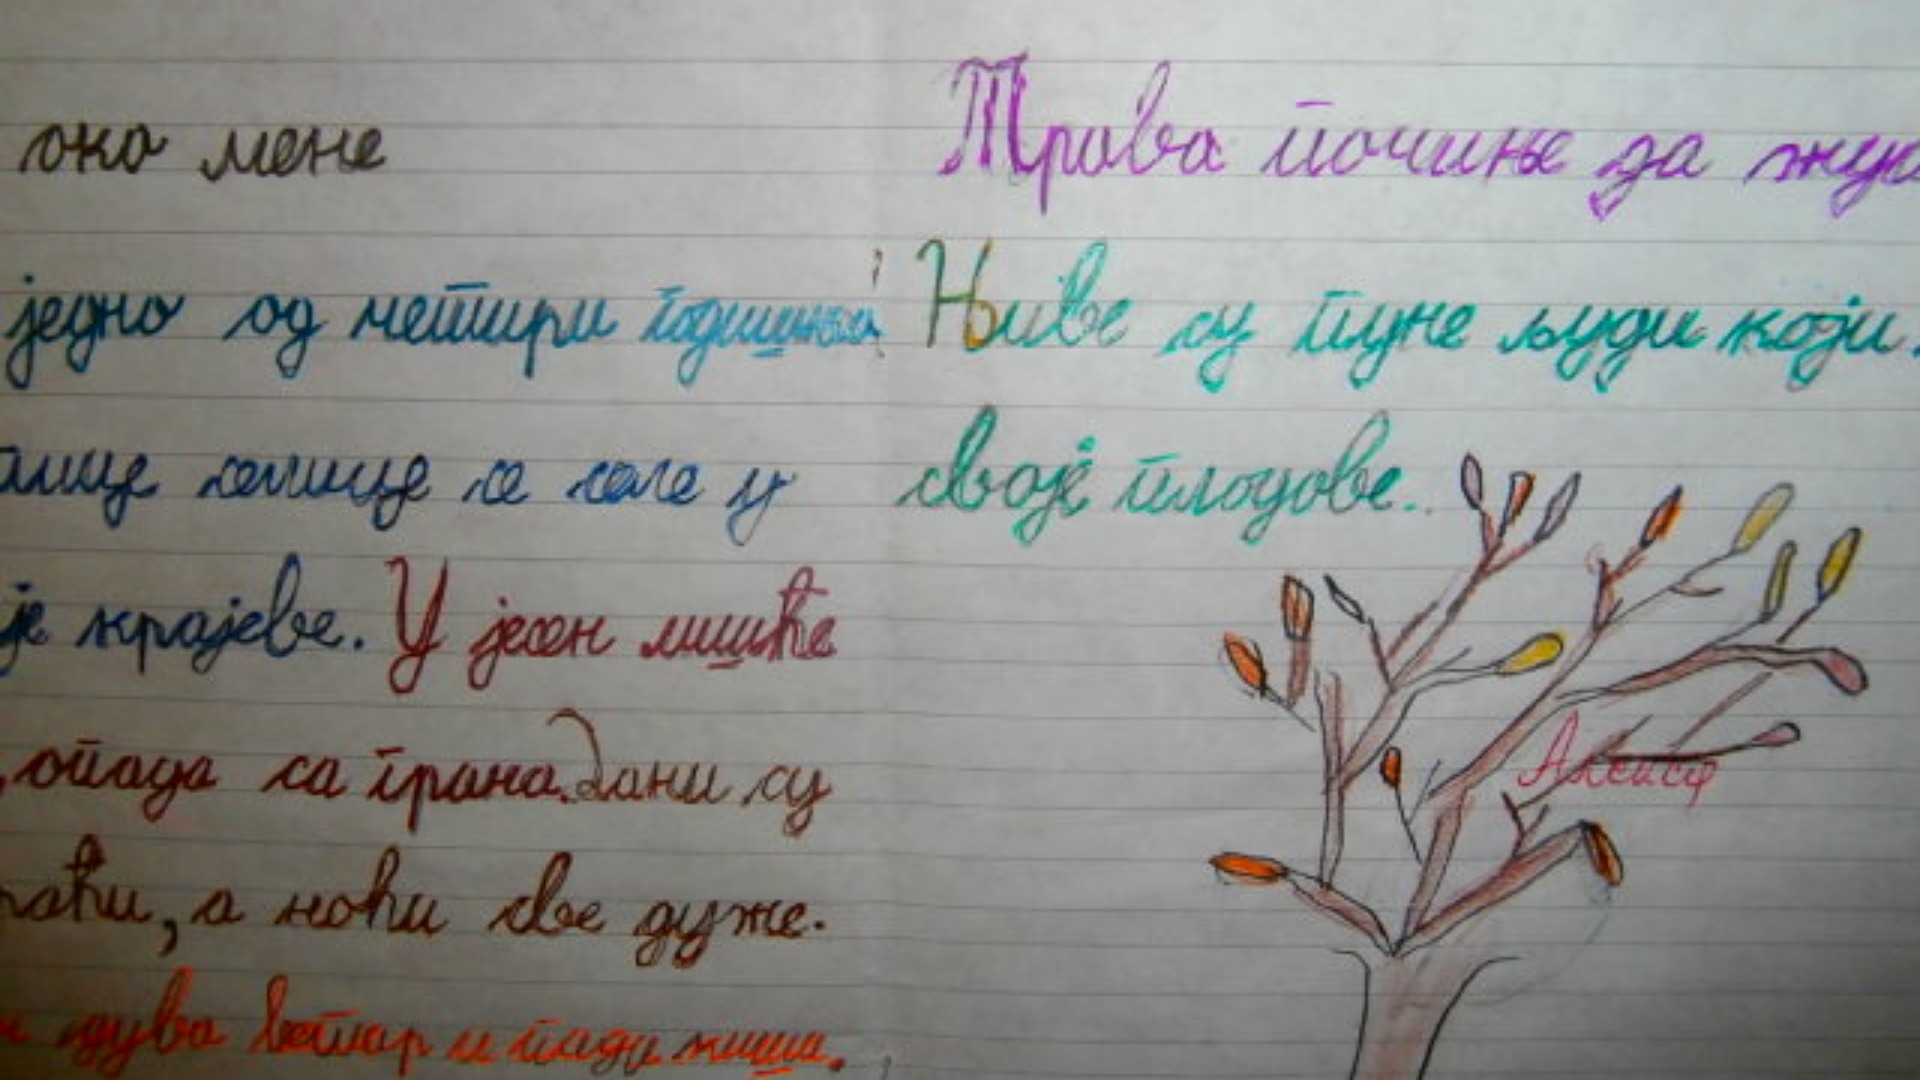 око мене
једно од четири годишња
птице селице се селе у
је крајеве. У јесен лишће
опада са грана. Дани су
краћи, а ноћи све дуже.
дува ветар и пада киша.
Трава почиње да жу
Њиве су пуне људи који
своје плодове..
Алекса